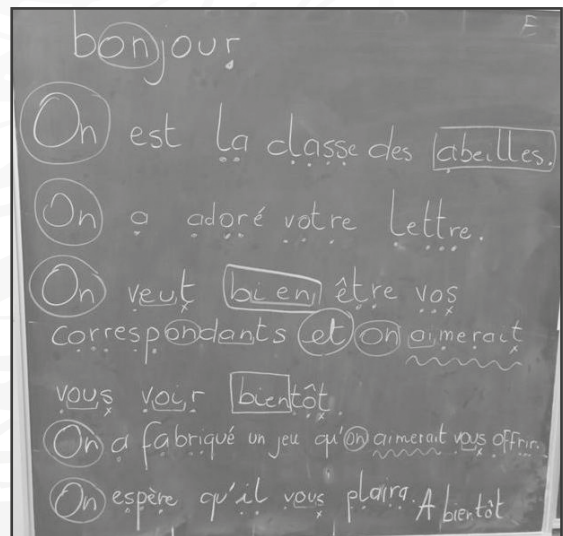 E
bonjour
On est la classe des abeilles.
On a adoré votre lettre.
On veut bien être vos
correspondants et on aimerait
vous voir bientôt.
On a fabriqué un jeu qu'on aimerait vous offrir.
On espère qu'il vous plaira. A bientôt